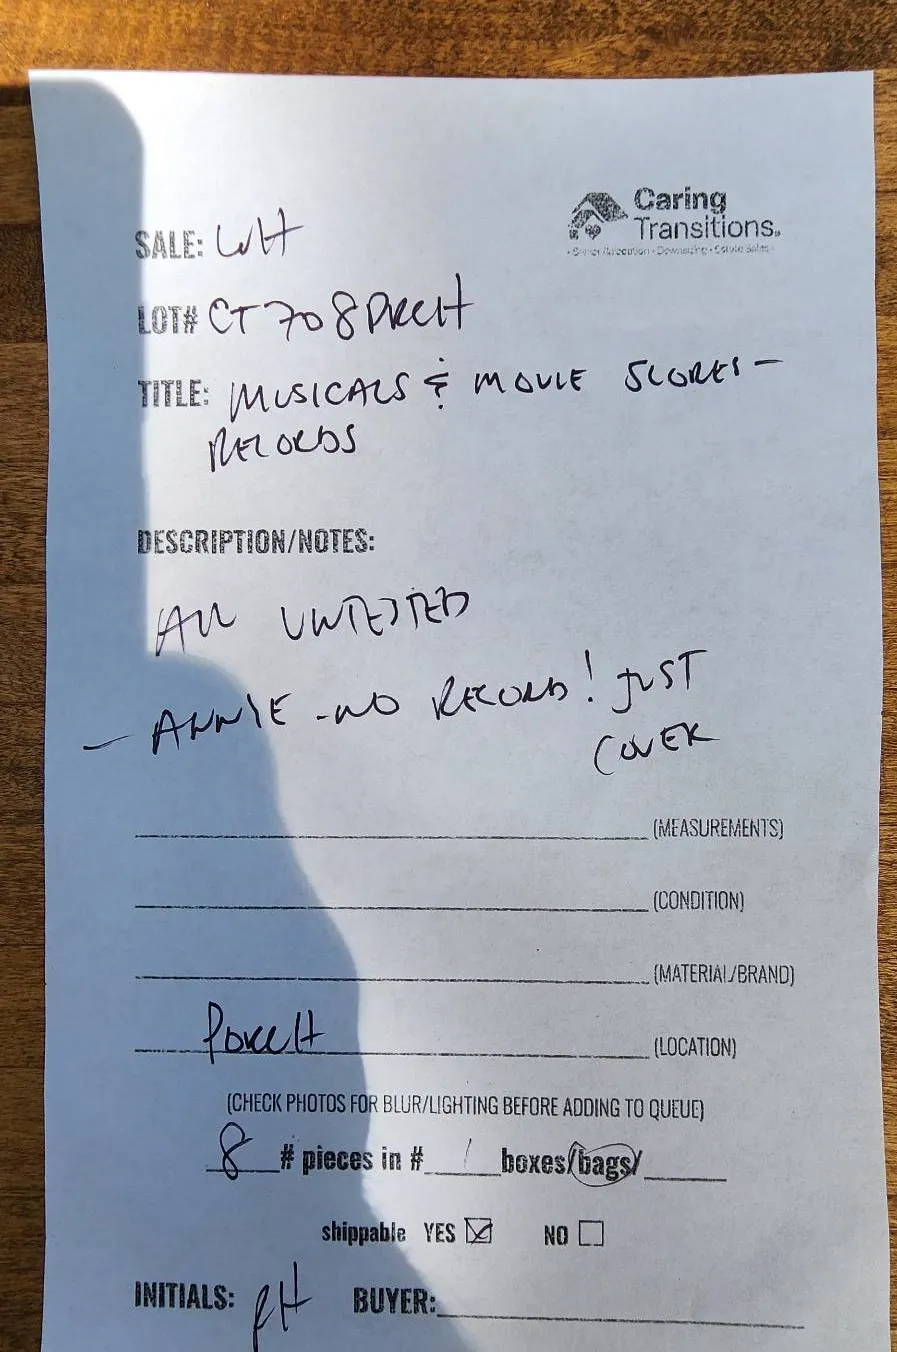 Caring
Transitions
SALE: WH
LOT# CT708PRCH
TITLE: MUSICALS & MOVIE SCORES -
RECORDS
DESCRIPTION/NOTES:
ALL UNTESTED
- ANNIE - NO RECORD! JUST
COVER
(MEASUREMENTS)
(CONDITION)
(MATERIAL/BRAND)
PORCH (LOCATION)
(CHECK PHOTOS FOR BLUR/LIGHTING BEFORE ADDING TO QUEUE)
8 # pieces in # 1 boxes/bags/
shippable YES NO
INITIALS: RH BUYER: